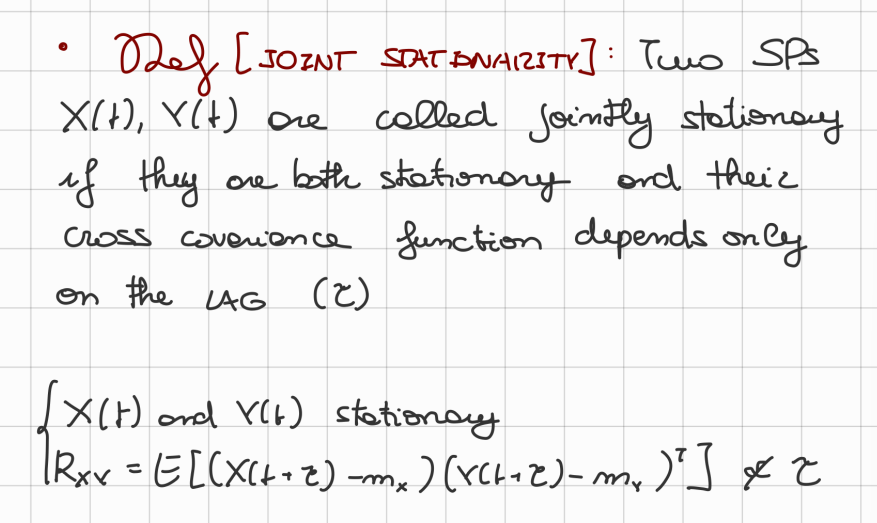 • Def [JOINT STATIONARITY]: Two SPs
X(t), Y(t) are called jointly stationary
if they are both stationary and their
cross covariance function depends only
on the LAG (τ)
{ X(t) and Y(t) stationary
R_XY = E[(X(t+τ) - m_x)(Y(t+τ) - m_Y)^T] ∝̸ τ